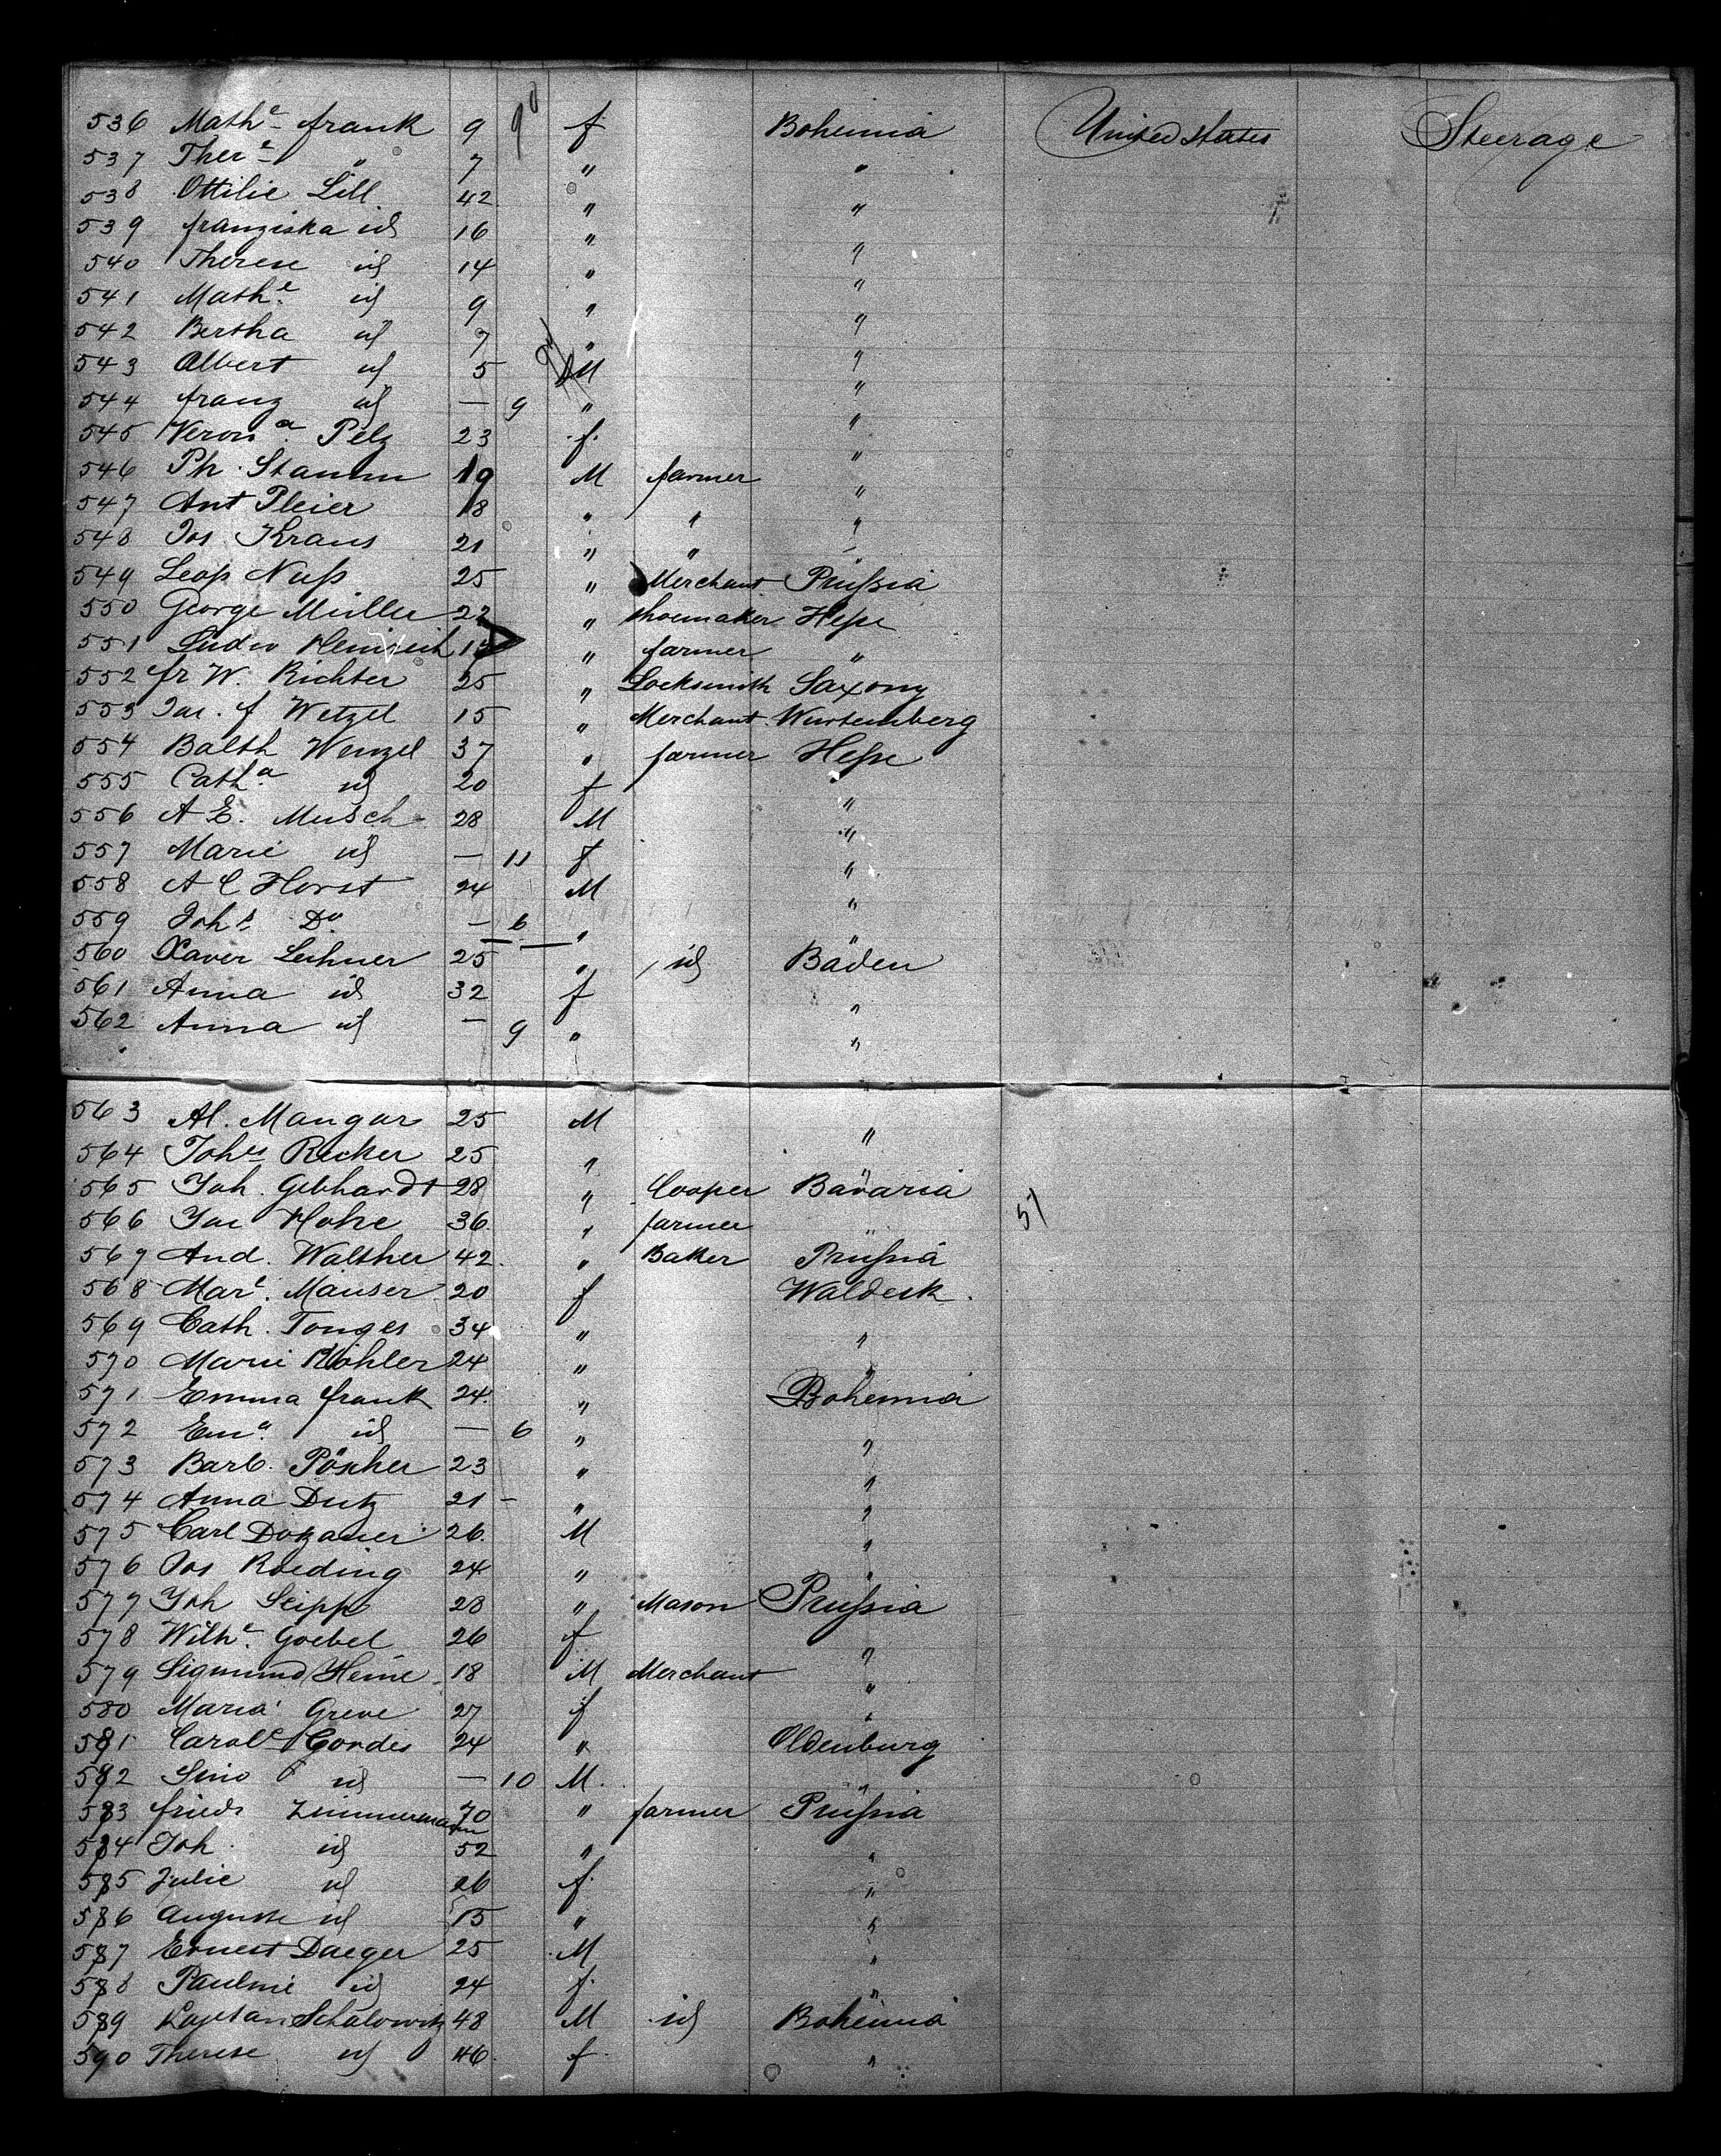 536 Mathe frank 9 f Bohemia United States Steerage
537 There " 7 " "
538 Ottilie Lill 42 " "
539 franziska id 16 " "
540 Therese id 14 " "
541 Mathe id 9 " "
542 Bertha id 7 " "
543 Albert id 5 M "
544 franz id — 9 " "
545 Verona Pelz 23 f. "
546 Ph. Stamm 19 M farmer "
547 Ant Pleier 18 " " "
548 Jos. Kraus 21 " " "
549 Leop Nuß 25 " Merchant Prußia
550 George Müller 22 " Shoemaker Heße
551 Ludw Heinrich " farmer "
552 fr W. Richter 25 " Locksmith Saxony
553 Jac. f Wetzel 15 " Merchant Wurtemberg
554 Balth Wenzel 37 " farmer Heße
555 Catha id 20 f "
556 A E. Musch 28 M "
557 Marie id — 11 f "
558 A C Horst 24 M "
559 Johs Do — 6 " "
560 Xaver Lehner 25 " id Baden
561 Anna id 32 f "
562 Anna id — 9 " "
563 Al. Mangar 25 M "
564 Johs Recker 25 " "
565 Joh. Gebhardt 28 " Cooper Bavaria
566 Jac Hohe 36 " farmer " 51
567 And. Walther 42. " Baker Prußia
568 Mare. Mauser 20 f Waldeck.
569 Cath. Tonges 34 " "
570 Marie Köhler 24 " "
571 Emma frank 24. " Bohemia
572 Ema id — 6 " "
573 Barb. Pöscher 23 " "
574 Anna Dutz 21 – " "
575 Carl Dotzauer 26. M "
576 Jos Roeding 24 " "
577 Joh Seipp 28 " Mason Prußia
578 Wilhe. Goebel 26 f "
579 Sigmund Heine 18 M Merchant "
580 Maria Greve 27 f "
581 Carole Cordes 24 " Oldenburg
582 id — 10 M. "
583 friedr Zimmermann 70 " farmer Prußia
584 Joh id 52 " "
585 Julie id 26 f. "
586 Auguste id 15 " "
587 Ernest Daeger 25 M "
588 Pauline id 24 f. "
589 Kajetan Schalowitz 48 M id Bohemia
590 Therese id 46. f "